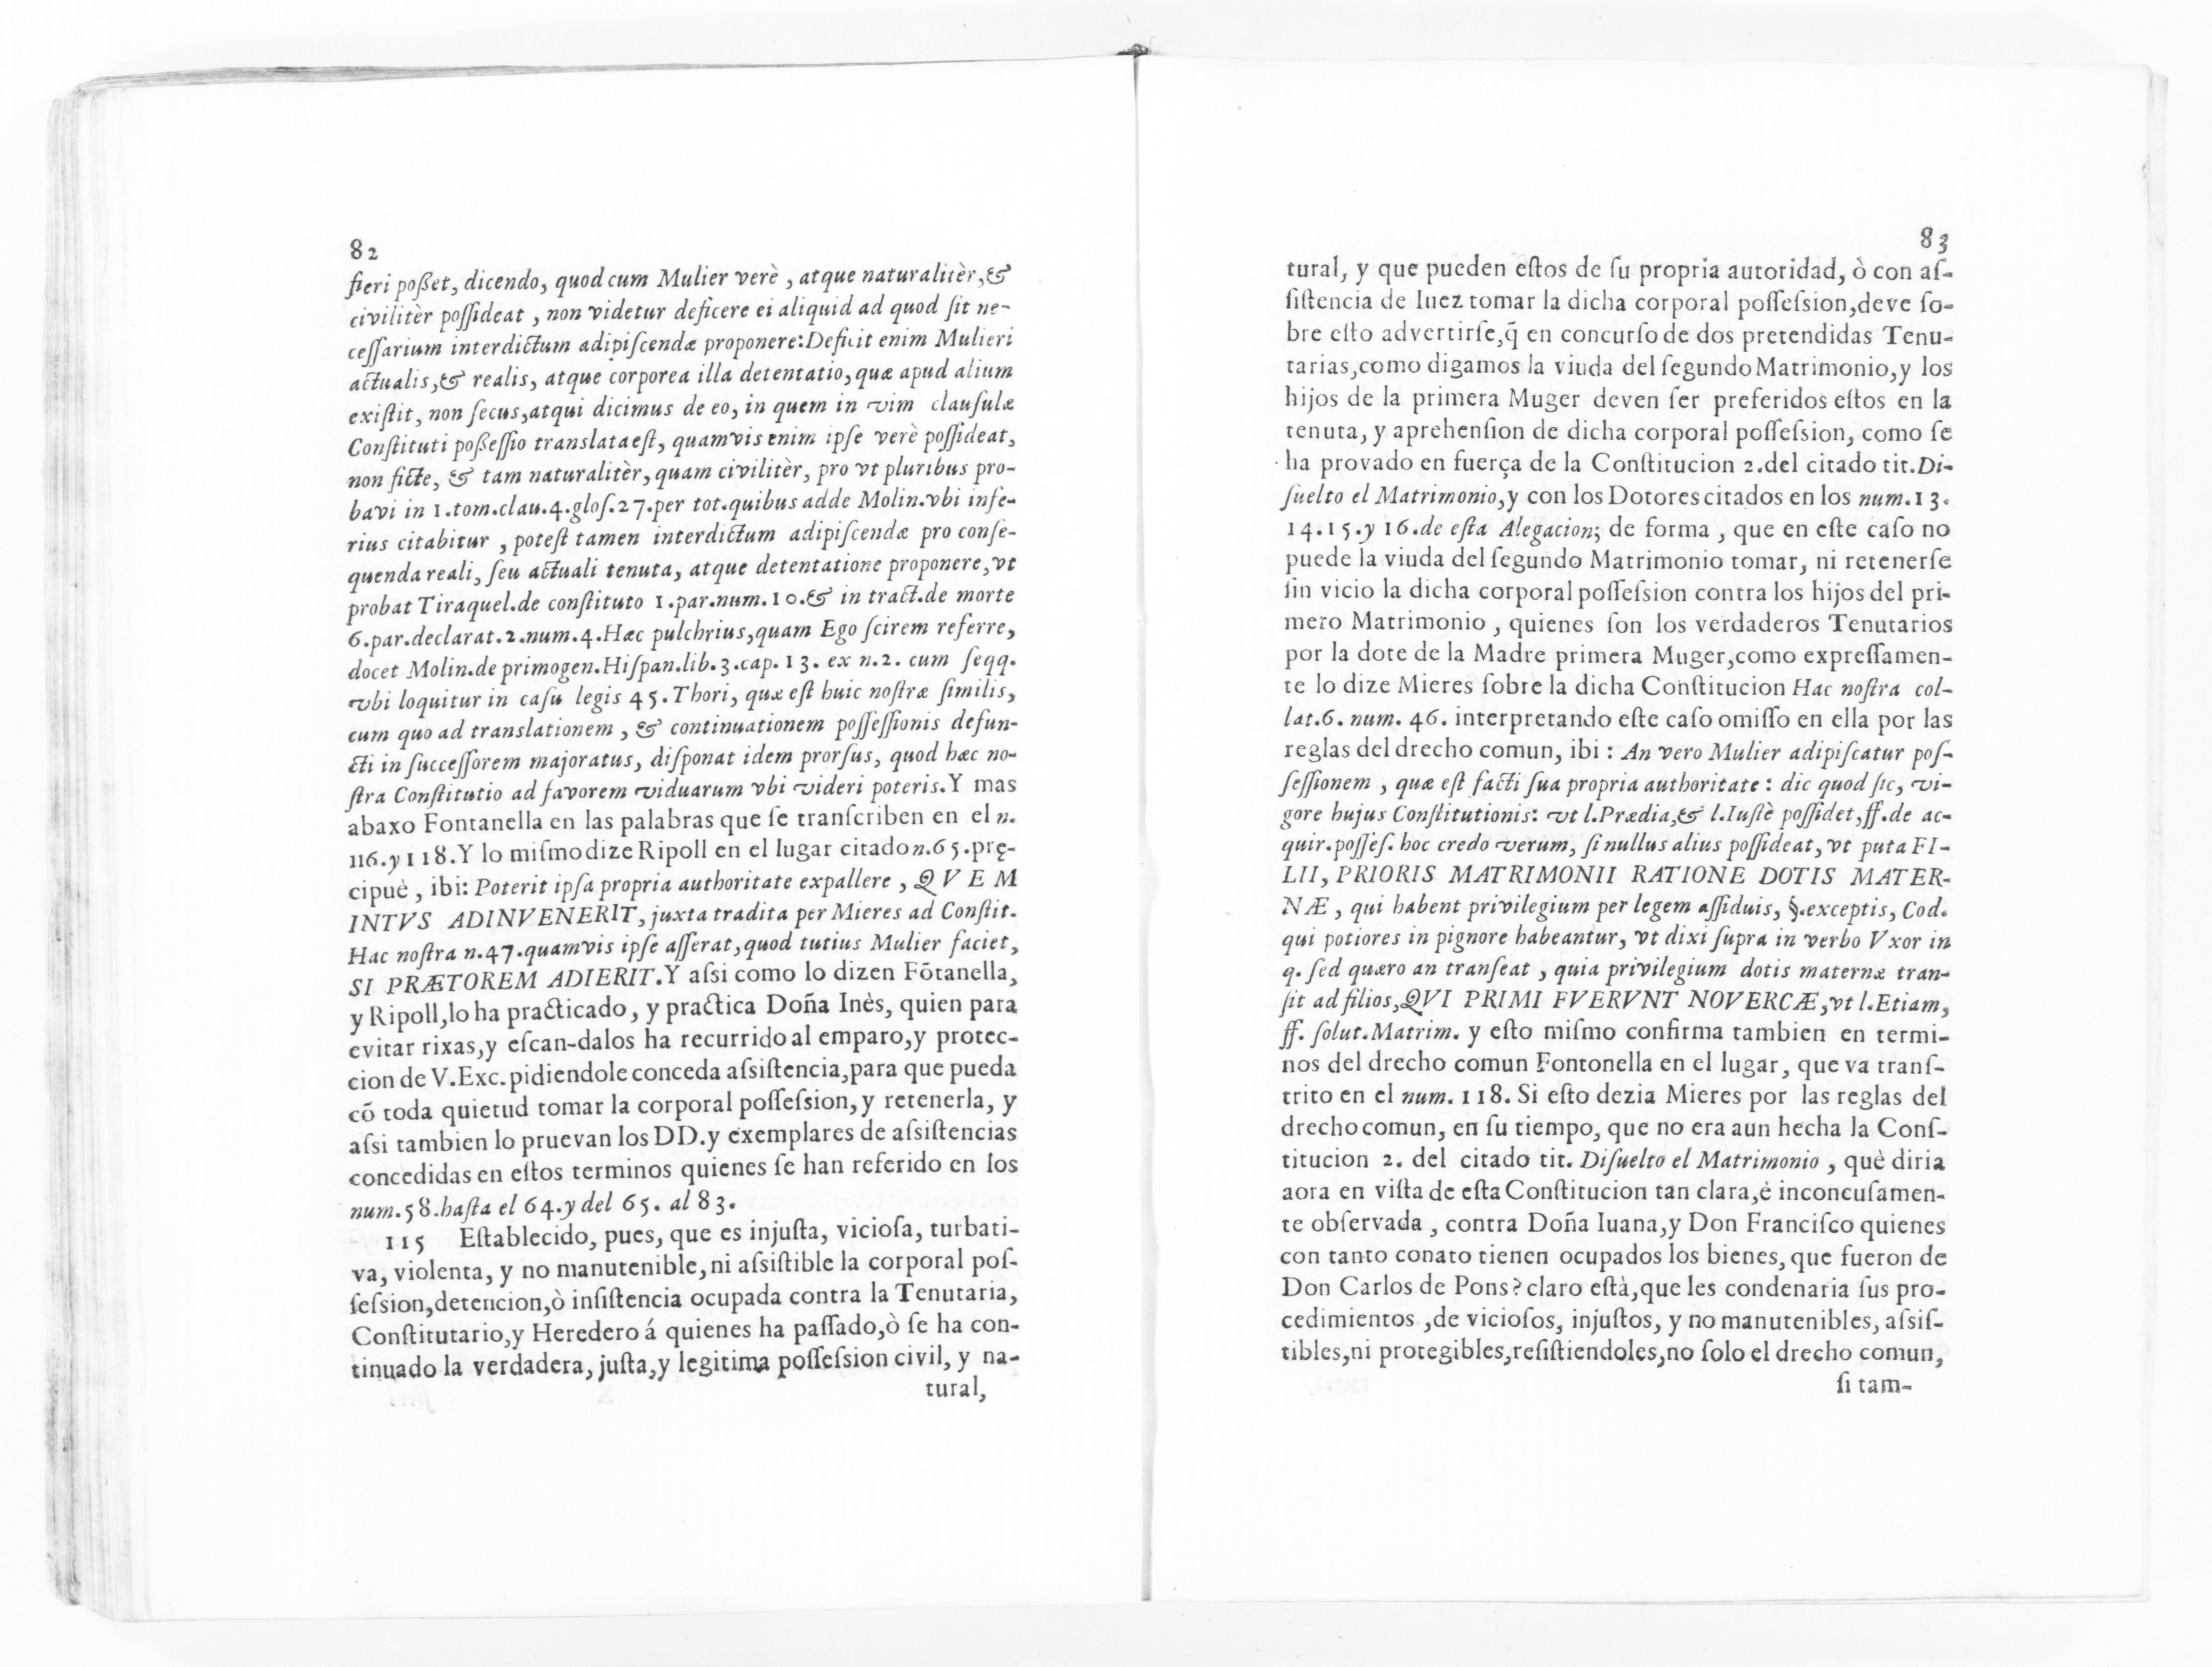 82
fieri poßet, dicendo, quod cum Mulier verè, atque naturalitèr, &
civilitèr poſſideat, non videtur deficere ei aliquid ad quod ſit ne-
ceſſarium interdictum adipiſcendæ proponere: Deficit enim Mulieri
actualis, & realis, atque corporea illa detentatio, quæ apud alium
exiſtit, non ſecus, atqui dicimus de eo, in quem in vim clauſulæ
Conſtituti poßeſſio translata eſt, quamvis enim ipſe verè poſſideat,
non ficte, & tam naturalitèr, quam civilitèr, pro vt pluribus pro-
bavi in 1.tom.clau.4.gloſ.27.per tot.quibus adde Molin.vbi infe-
rius citabitur, poteſt tamen interdictum adipiſcendæ pro conſe-
quenda reali, ſeu actuali tenuta, atque detentatione proponere, vt
probat Tiraquel.de conſtituto 1.par.num.10.& in tract.de morte
6.par.declarat.2.num.4.Hæc pulchrius, quam Ego ſcirem referre,
docet Molin.de primogen.Hiſpan.lib.3.cap.13. ex n.2. cum ſeqq.
vbi loquitur in caſu legis 45.Thori, quæ eſt huic noſtræ ſimilis,
cum quo ad translationem, & continuationem poſſeſſionis defun-
cti in ſucceſſorem majoratus, diſponat idem prorſus, quod hæc no-
ſtra Conſtitutio ad favorem viduarum vbi videri poteris. Y mas
abaxo Fontanella en las palabras que ſe tranſcriben en el n.
116.y 118. Y lo miſmo dize Ripoll en el lugar citado n.65.prę-
cipuè, ibi: Poterit ipſa propria authoritate expallere, QVEM
INTVS ADINVENERIT, juxta tradita per Mieres ad Conſtit.
Hac noſtra n.47.quamvis ipſe aſſerat, quod tutius Mulier faciet,
SI PRÆTOREM ADIERIT. Y aſsi como lo dizen Fōtanella,
y Ripoll, lo ha practicado, y practica Doña Inès, quien para
evitar rixas, y eſcan-dalos ha recurrido al emparo, y protec-
cion de V.Exc. pidiendole conceda aſsiſtencia, para que pueda
cō toda quietud tomar la corporal poſſeſsion, y retenerla, y
aſsi tambien lo pruevan los DD. y exemplares de aſsiſtencias
concedidas en eſtos terminos quienes ſe han referido en los
num.58.haſta el 64.y del 65. al 83.
115 Eſtablecido, pues, que es injuſta, vicioſa, turbati-
va, violenta, y no manutenible, ni aſsiſtible la corporal poſ-
ſeſsion, detencion, ò inſiſtencia ocupada contra la Tenutaria,
Conſtitutario, y Heredero á quienes ha paſſado, ò ſe ha con-
tinuado la verdadera, juſta, y legitima poſſeſsion civil, y na-
tural,
83
tural, y que pueden eſtos de ſu propria autoridad, ò con aſ-
ſiſtencia de Iuez tomar la dicha corporal poſſeſsion, deve ſo-
bre eſto advertirſe, q̄ en concurſo de dos pretendidas Tenu-
tarias, como digamos la viuda del ſegundo Matrimonio, y los
hijos de la primera Muger deven ſer preferidos eſtos en la
tenuta, y aprehenſion de dicha corporal poſſeſsion, como ſe
ha provado en fuerça de la Conſtitucion 2.del citado tit. Di-
ſuelto el Matrimonio, y con los Dotores citados en los num.13.
14.15.y 16.de eſta Alegacion; de forma, que en eſte caſo no
puede la viuda del ſegundo Matrimonio tomar, ni retenerſe
ſin vicio la dicha corporal poſſeſsion contra los hijos del pri-
mero Matrimonio, quienes ſon los verdaderos Tenutarios
por la dote de la Madre primera Muger, como expreſſamen-
te lo dize Mieres ſobre la dicha Conſtitucion Hac noſtra col-
lat.6. num. 46. interpretando eſte caſo omiſſo en ella por las
reglas del drecho comun, ibi: An vero Mulier adipiſcatur poſ-
ſeſſionem, quæ eſt facti ſua propria authoritate: dic quod ſic, vi-
gore hujus Conſtitutionis: vt l.Prædia, & l.Iuſtè poſſidet, ff.de ac-
quir.poſſeſ. hoc credo verum, ſi nullus alius poſſideat, vt puta FI-
LII, PRIORIS MATRIMONII RATIONE DOTIS MATER-
NÆ, qui habent privilegium per legem aſſiduis, §.exceptis, Cod.
qui potiores in pignore habeantur, vt dixi ſupra in verbo Vxor in
q. ſed quæro an tranſeat, quia privilegium dotis maternæ tran-
ſit ad filios, QVI PRIMI FVERVNT NOVERCÆ, vt l.Etiam,
ff. ſolut.Matrim. y eſto miſmo confirma tambien en termi-
nos del drecho comun Fontonella en el lugar, que va tranſ-
trito en el num. 118. Si eſto dezia Mieres por las reglas del
drecho comun, en ſu tiempo, que no era aun hecha la Conſ-
titucion 2. del citado tit. Diſuelto el Matrimonio, què diria
aora en viſta de eſta Conſtitucion tan clara, è inconcuſamen-
te obſervada, contra Doña Iuana, y Don Franciſco quienes
con tanto conato tienen ocupados los bienes, que fueron de
Don Carlos de Pons? claro eſtà, que les condenaria ſus pro-
cedimientos, de vicioſos, injuſtos, y no manutenibles, aſsiſ-
tibles, ni protegibles, reſiſtiendoles, no ſolo el drecho comun,
ſi tam-